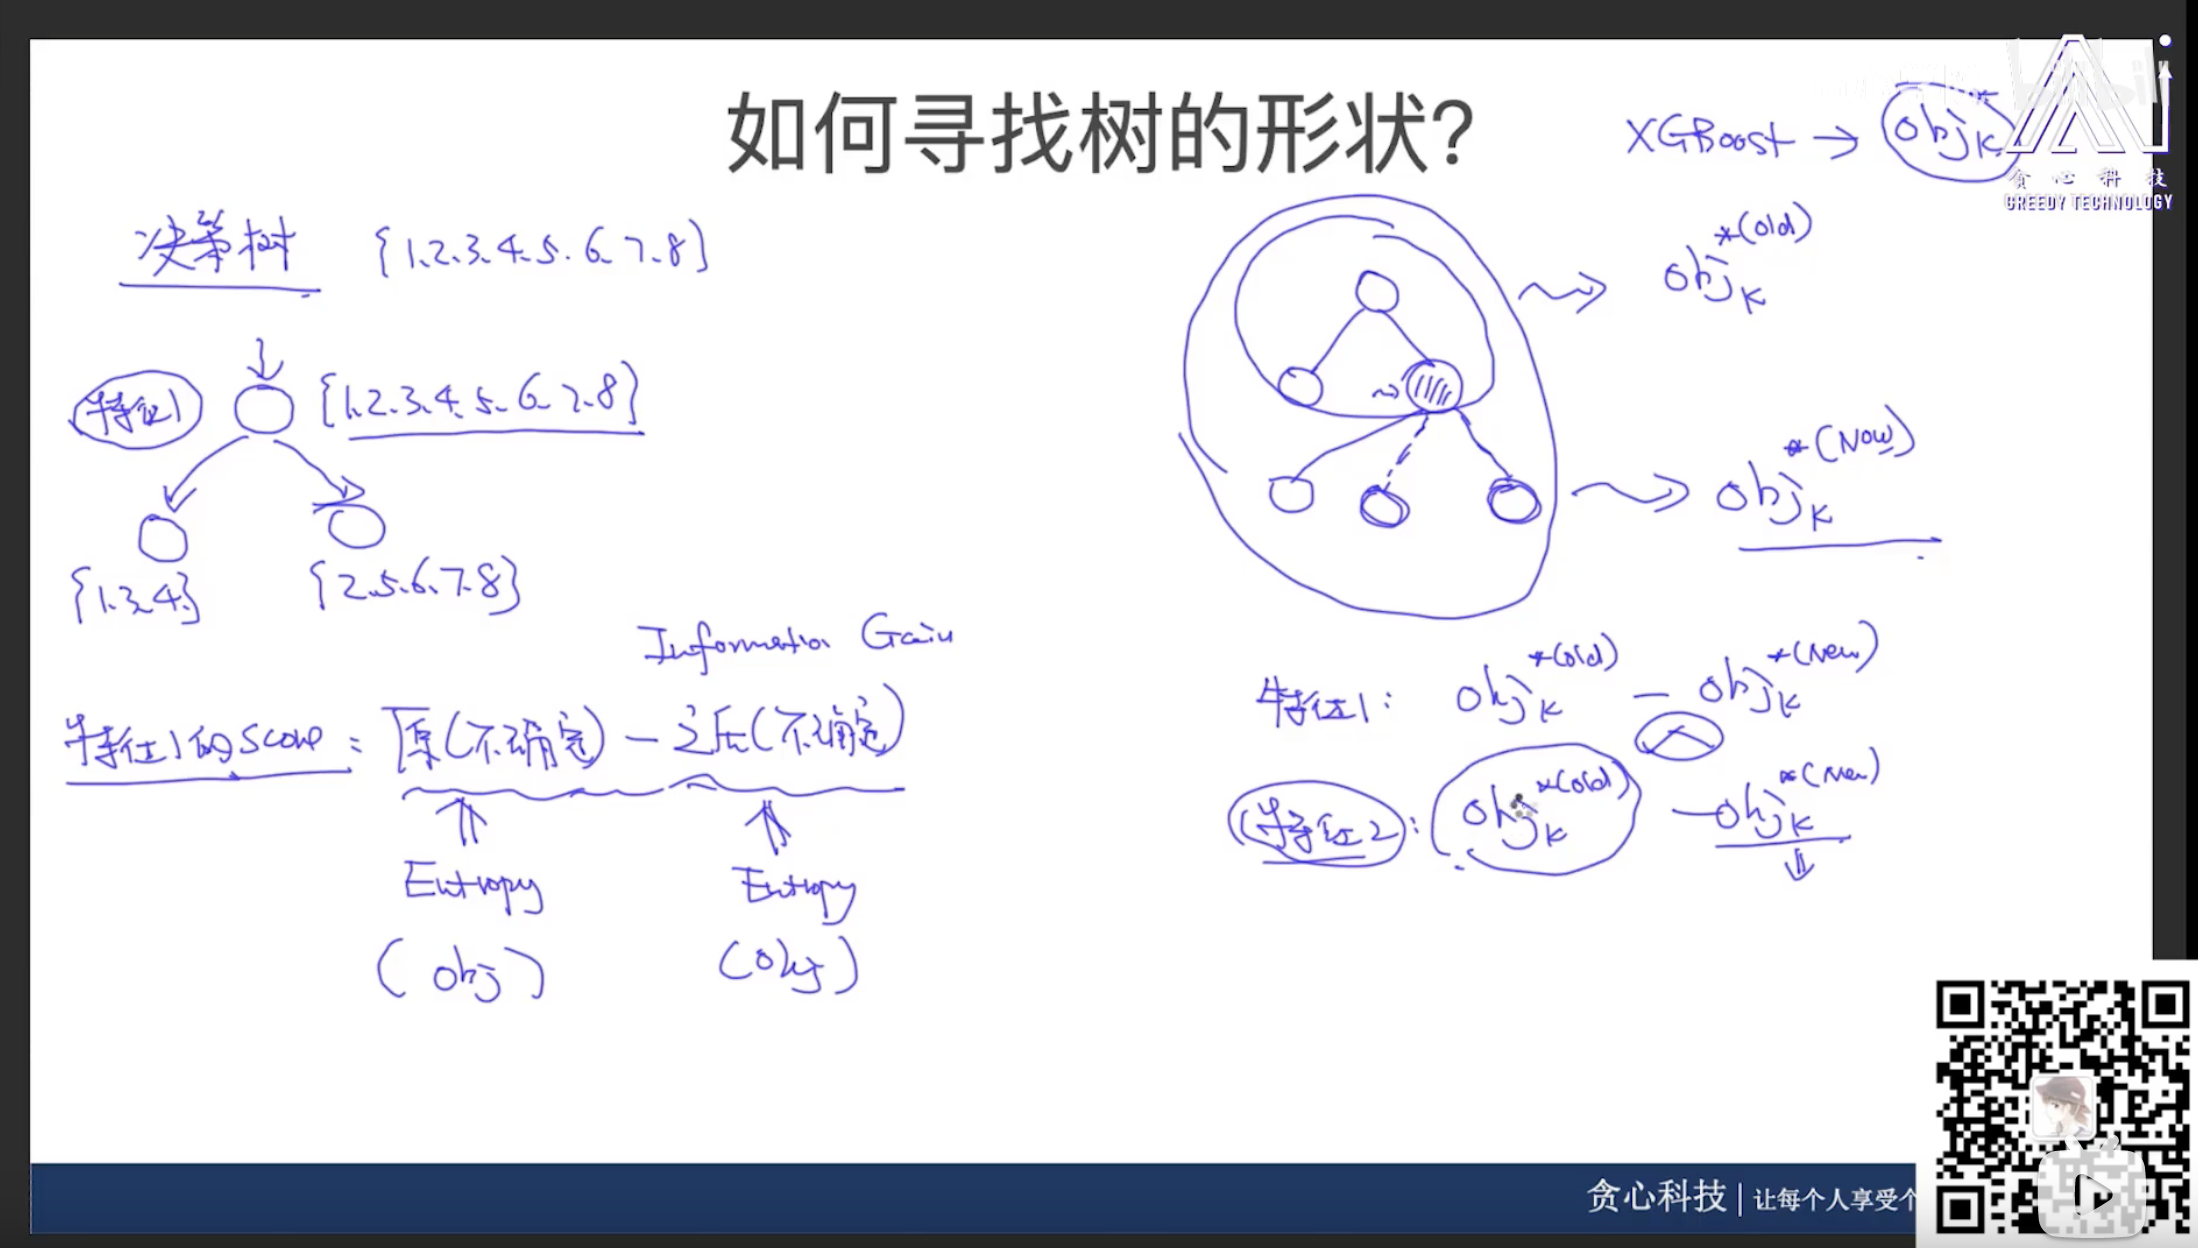 如何寻找树的形状?
XGBoost → obj*K
贪心科技
GREEDY TECHNOLOGY
决策树 {1.2.3.4.5.6.7.8}
obj K *(old)
特征1 {1.2.3.4.5.6.7.8}
obj K *(Now)
{1.3.4} {2.5.6.7.8}
Information Gain
特征1的Score: 原(不确定) - 之后(不确定)
Entropy Entropy
(obj) (obj)
特征1: obj K *(old) - obj K *(New)
特征2: obj K *(old) - obj K *(New)
贪心科技 | 让每个人享受个